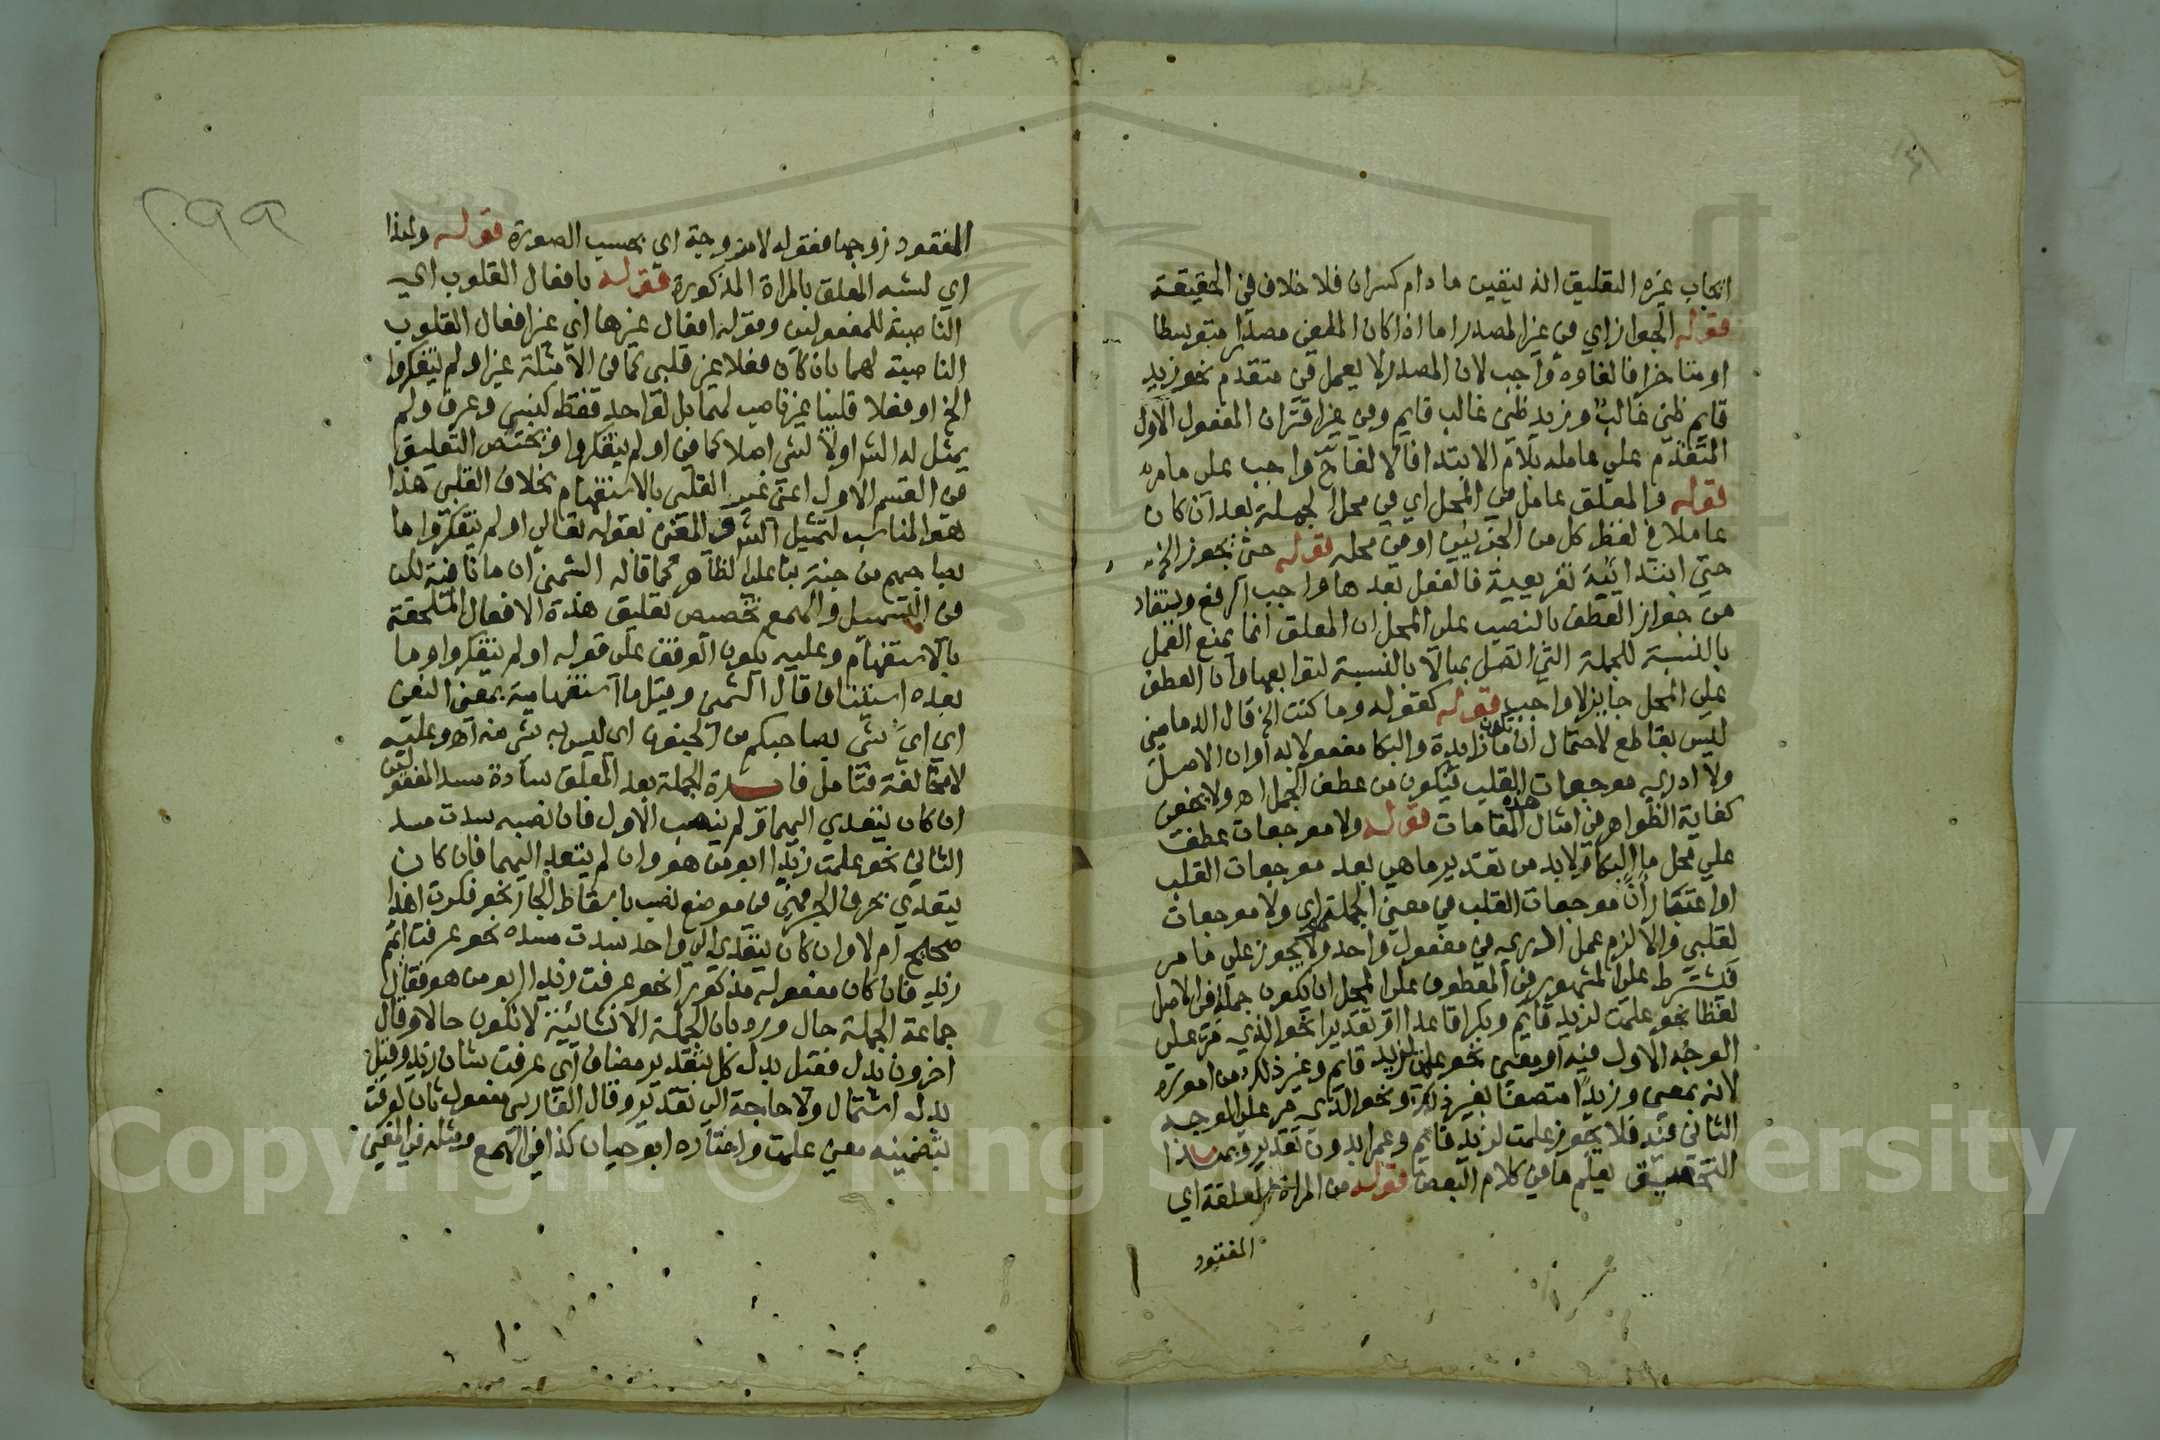 ايجاب غيره التعليق اذ يتعين ما دام كسران فلا خلاف في الحقيقة
قوله الجواز اي في غير المصدر اما اذا كان الملغى مصدرا متوسطا
او متاخرا فالغاوه واجب لان المصدر لا يعمل في متقدم نحو زيد
قايم ظني غالب وزيد ظني غالب قايم وفي غير اقتران المفعول الاول
المتقدم على عامله بلام الابتدا فالالغاح واجب على ما مر
قوله والمعلق عامل في المحل اي في محل الجملة بعد ان كان
عاملا في لفظ كل من الجزئين او في محله قوله حتى يجوز الخ
حتى ابتدائية تفريعية فالفعل بعدها واجب الرفع ويستفاد
من جواز العطف بالنصب على المحل ان المعلق انما يمنع العمل
بالنسبة للجملة التي اتصل بها لا بالنسبة لتوابعها وان العطف
على المحل جايز لا واجب قوله كقوله وما كنت الخ قال الدماميني
ليس بقاطع لاحتمال ان تكون ما زايدة والبكا مفعولا به او ان الاصل
ولا ادري موجعات القلب فيكون من عطف الجمل اه ولا يخفى
كفاية الظواهر في امثال هذه المقامات قوله ولا موجعات عطفت
على محل ما البكا ولا بد من تقدير ما هي بعد موجعات القلب
او اعتقار ان موجعات القلب في معنى الجملة اي ولا موجعات
لقلبي والا لزم عمل ادري في مفعول واحد ولا يجوز على ما مر
فيشترط على المشهور في المعطوف على المحل ان يكون جملة في الاصل
لفظا نحو علمت لزيد قايم وبكرا قاعدا او تقديرا نحو الذي مر على
الوجه الاول فيه او معنى نحو علمت لزيد قايم وغير ذلك من اموره
لانه بمعنى وزيدا متصفا بغير ذلك ونحو الذي مر على الوجه
الثاني فيه فلا يجوز علمت لزيد قايم وعمرا بدون تقدير وبهذا
التحقيق يعلم ما في كلام البعض قوله من المراة المعلقة اي
المفقود
٢٠٩٩
المفقود زوجها فقوله لا مزوجة اي بحسب الصورة قوله ولهذا
اي لشبه المعلق بالمراة المذكورة قوله بافعال القلوب اي
الناصبة للمفعولين وقوله افعال غيرها اي غير افعال القلوب
الناصبة لهما بان كان فعلا غير قلبي كما في الامثلة غير او لم يتفكروا
الخ او فعلا قلبيا غير ناصب لهما بل لواحد فقط كنسي وعرف ولم
يمثل له الش اولا لشي اصلا كما في او لم يتفكروا ويختص التعليق
في القسم الاول اعني غير القلبي بالاستفهام بخلاف القلبي هذا
هو المناسب لتمثيل الش في المغني بقوله تعالى او لم يتفكروا ما
بصاحبهم من جنة بنا على الظاهر كما قاله الشمني ان ما نافية لكن
في التسهيل والهمع تخصيص تعليق هذه الافعال الملحقة
بالاستفهام وعليه يكون الوقف على قوله او لم يتفكروا وما
بعده استئناف قال الشمني وقيل ما استفهامية بمعنى النفي
اي اي شي بصاحبكم من الجنون اي ليس به شي منه اه وعليه
لا مخالفة فتامل فايدة الجملة بعد المعلق سادة مسد المفعولين
ان كان يتعدى اليهما ولم ينصب الاول فان نصبه سدت مسد
الثاني نحو علمت زيدا ابو من هو وان لم يتعد اليهما فان كان
يتعدى بحرف الجر فهي في موضع نصب باسقاط الجار نحو فكرت اهذا
صحيح ام لا وان كان يتعدى الى واحد سدت مسده نحو عرفت ايهم
زيد فان كان مفعوله مذكورا نحو عرفت زيدا ابو من هو فقال
جماعة الجملة حال ورد بان الجملة الانشائية لا تكون حالا وقال
اخرون بدل فقيل بدل كل بتقدير مضاف اي عرفت شان زيد وقيل
بدل اشتمال ولا حاجة الى تقدير وقال الفارسي مفعول ثان لعرفت
بتضمينه معنى علمت واختاره ابو حيان كذا في الهمع ومثله في المغني